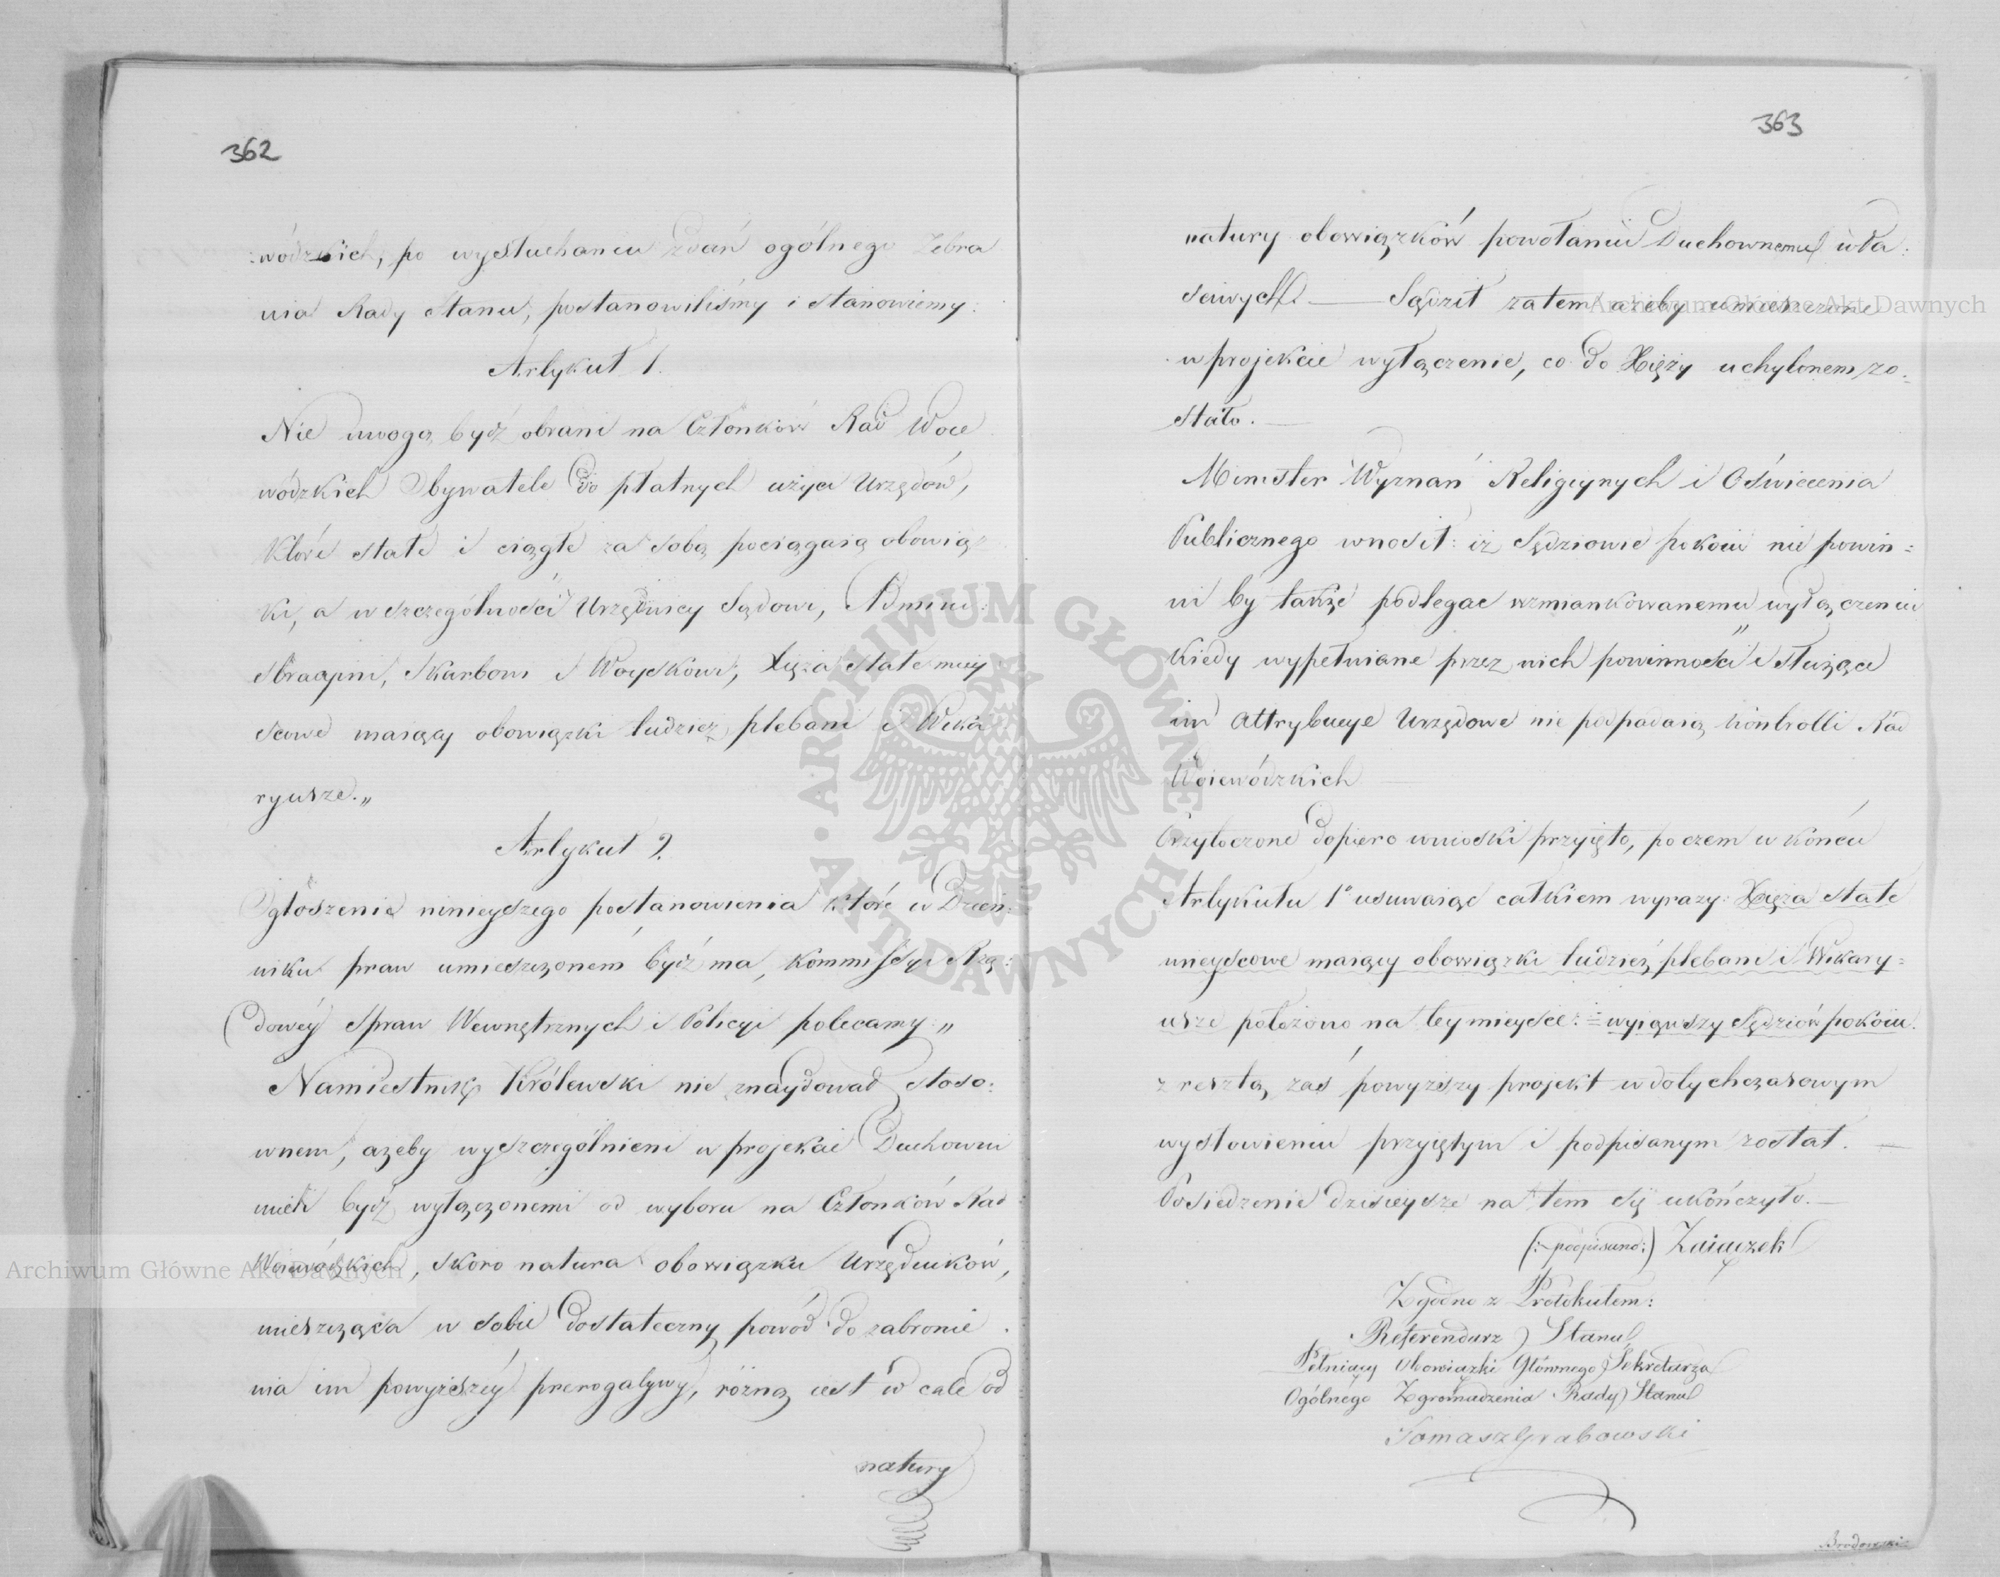 362
:wódzkich, po wysłuchaniu zdań ogólnego Zebra
nia Rady Stanu, postanowiliśmy i stanowiemy:
Artykuł 1.
Nie mogą być obrani na Członków Rad Woie
wódzkich Obywatele do płatnych użyci Urzędów,
które stałe i ciągłe za sobą pociągaią obowiąz
ki, a w szczególności Urzędnicy Sądowi, Admini:
stracyini, Skarbowi i Woyskowi, Xięża stałe miey
scowe maiący obowiązki tudzież plebani i Wika
ryusze.„
Artykuł 2.
Ogłoszenie ninieyszego postanowienia które w Dzien:
niku praw umieszczonem bydź ma, Kommissyi Rzą:
dowéy Spraw Wewnętrznych i Policyi polecamy „
Namiestnik Królewski nie znaydował stoso:
wnem, ażeby wyszczególnieni w projekcie Duchowni
mieli bydź wyłączonemi od wyboru na Członków Rad
Woiewódzkich, skoro natura obowiązku Urzędników,
mieszcząca w sobie dostateczny powód do zabronie
nia im powyższéy prerogatywy, różną iest w cale od
natury
363
natury obowiązków powołaniu Duchownemu wła:
sciwych. — Sądził zatem ażeby umieszczone
w projekcie wyłączenie, co do Xięży uchylonem zo:
stało. —
Minister Wyznań Religiynych i Oświecenia
Publicznego wnosił: iż Sędziowie pokoiu nie powin:
ni by także podlegać wzmiankowanemu wyłączeniu
kiedy wypełniane przez nich powinności i służące
im attrybucye Urzędowe nie podpadaią kontrolli Rad
Woiewódzkich —
Przytoczone dopiero wnioski przyięto, po czem w końcu
Artykułu 1º usuwaiąc całkiem wyrazy: Xięża stałe
mieyscowe maiący obowiązki tudzież plebani i Wikary=
usze położono na tey mieysce: = wyiąwszy Sędziów pokoiu.
z resztą zaś powyższy projekt w dotychczasowym
wysłowieniu przyiętym i podpisanym został. —
Posiedzenie dzisieysze na tem się ukończyło. —
(:podpisano:) Zaiączek
Zgodno z Protokułem:
Referendarz Stanu
Pełniący Obowiązki Głównego Sekretarza
Ogólnego Zgromadzenia Rady Stanu
Tomasz Grabowski
Brodowski
Archiwum Główne Akt Dawnych
Archiwum Główne Akt Dawnych
ARCHIWUM GŁÓWNE AKT DAWNYCH